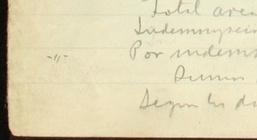 Total area
Indemnizaci
-"- Por indemn
Suman
Segun los da